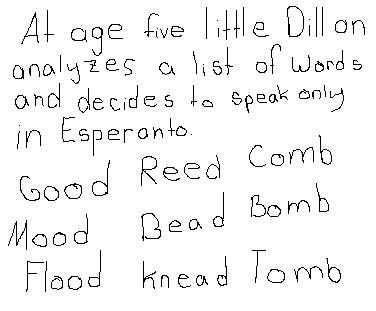 At age five little Dillon
analyzes a list of words
and decides to speak only
in Esperanto.
Good Reed Comb
Mood Bead Bomb
Flood knead Tomb